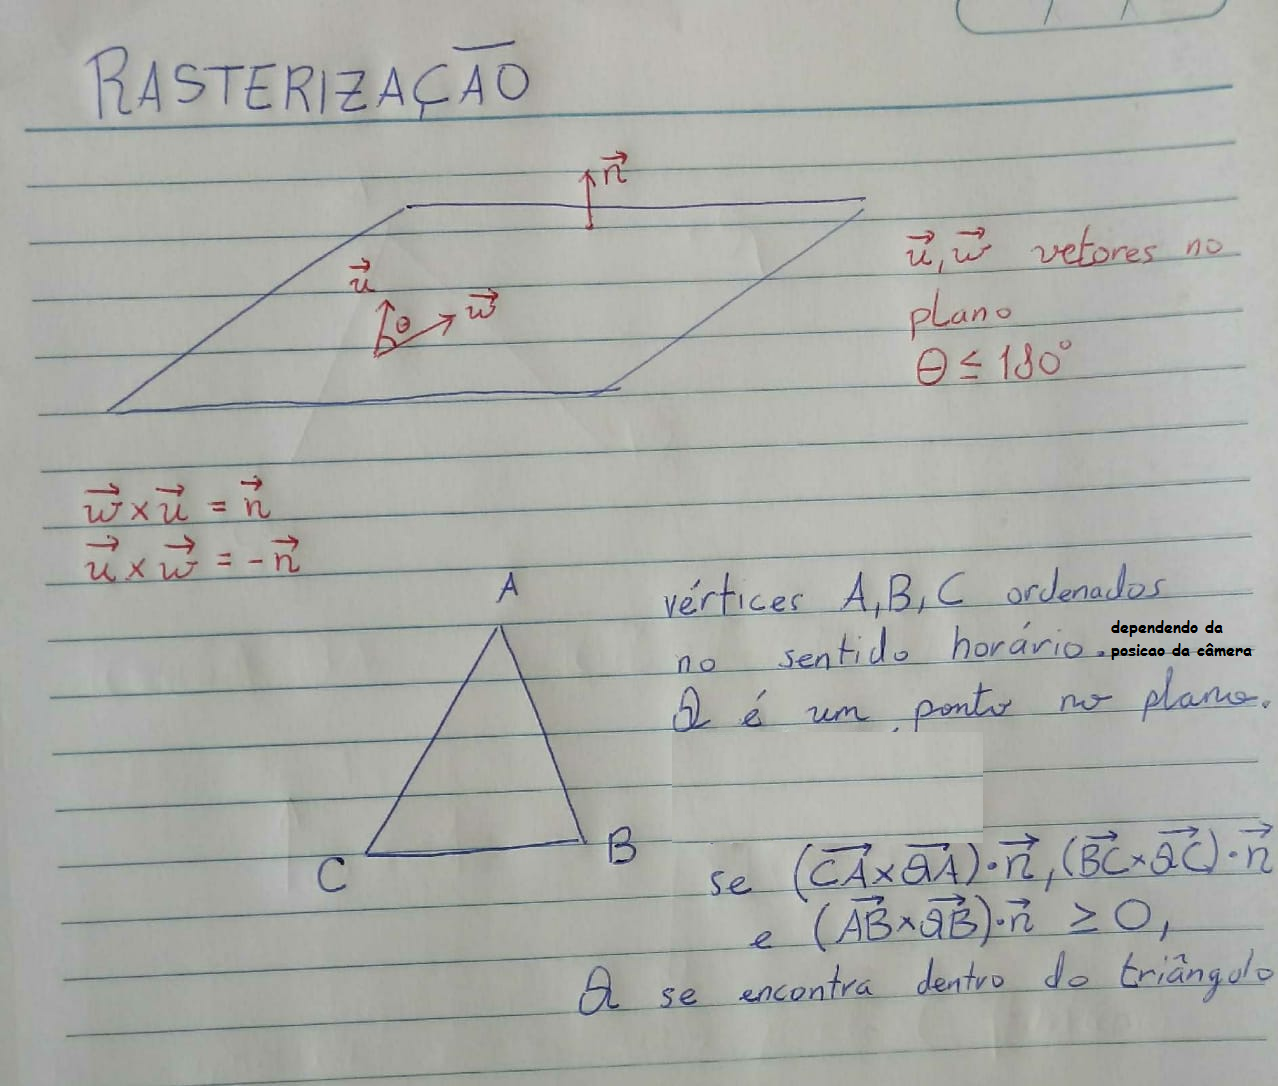 RASTERIZAÇÃO
n⃗
u⃗
θ
w⃗
u⃗, w⃗ vetores no
plano
θ ≤ 180°
w⃗ × u⃗ = n⃗
u⃗ × w⃗ = -n⃗
A
B
C
vértices A, B, C ordenados
no sentido horário. dependendo da
posicao da câmera
Q é um ponto no plano.
se (CA⃗ × QA⃗)·n⃗, (BC⃗ × QC⃗)·n⃗
e (AB⃗ × QB⃗)·n⃗ ≥ 0,
Q se encontra dentro do triângulo